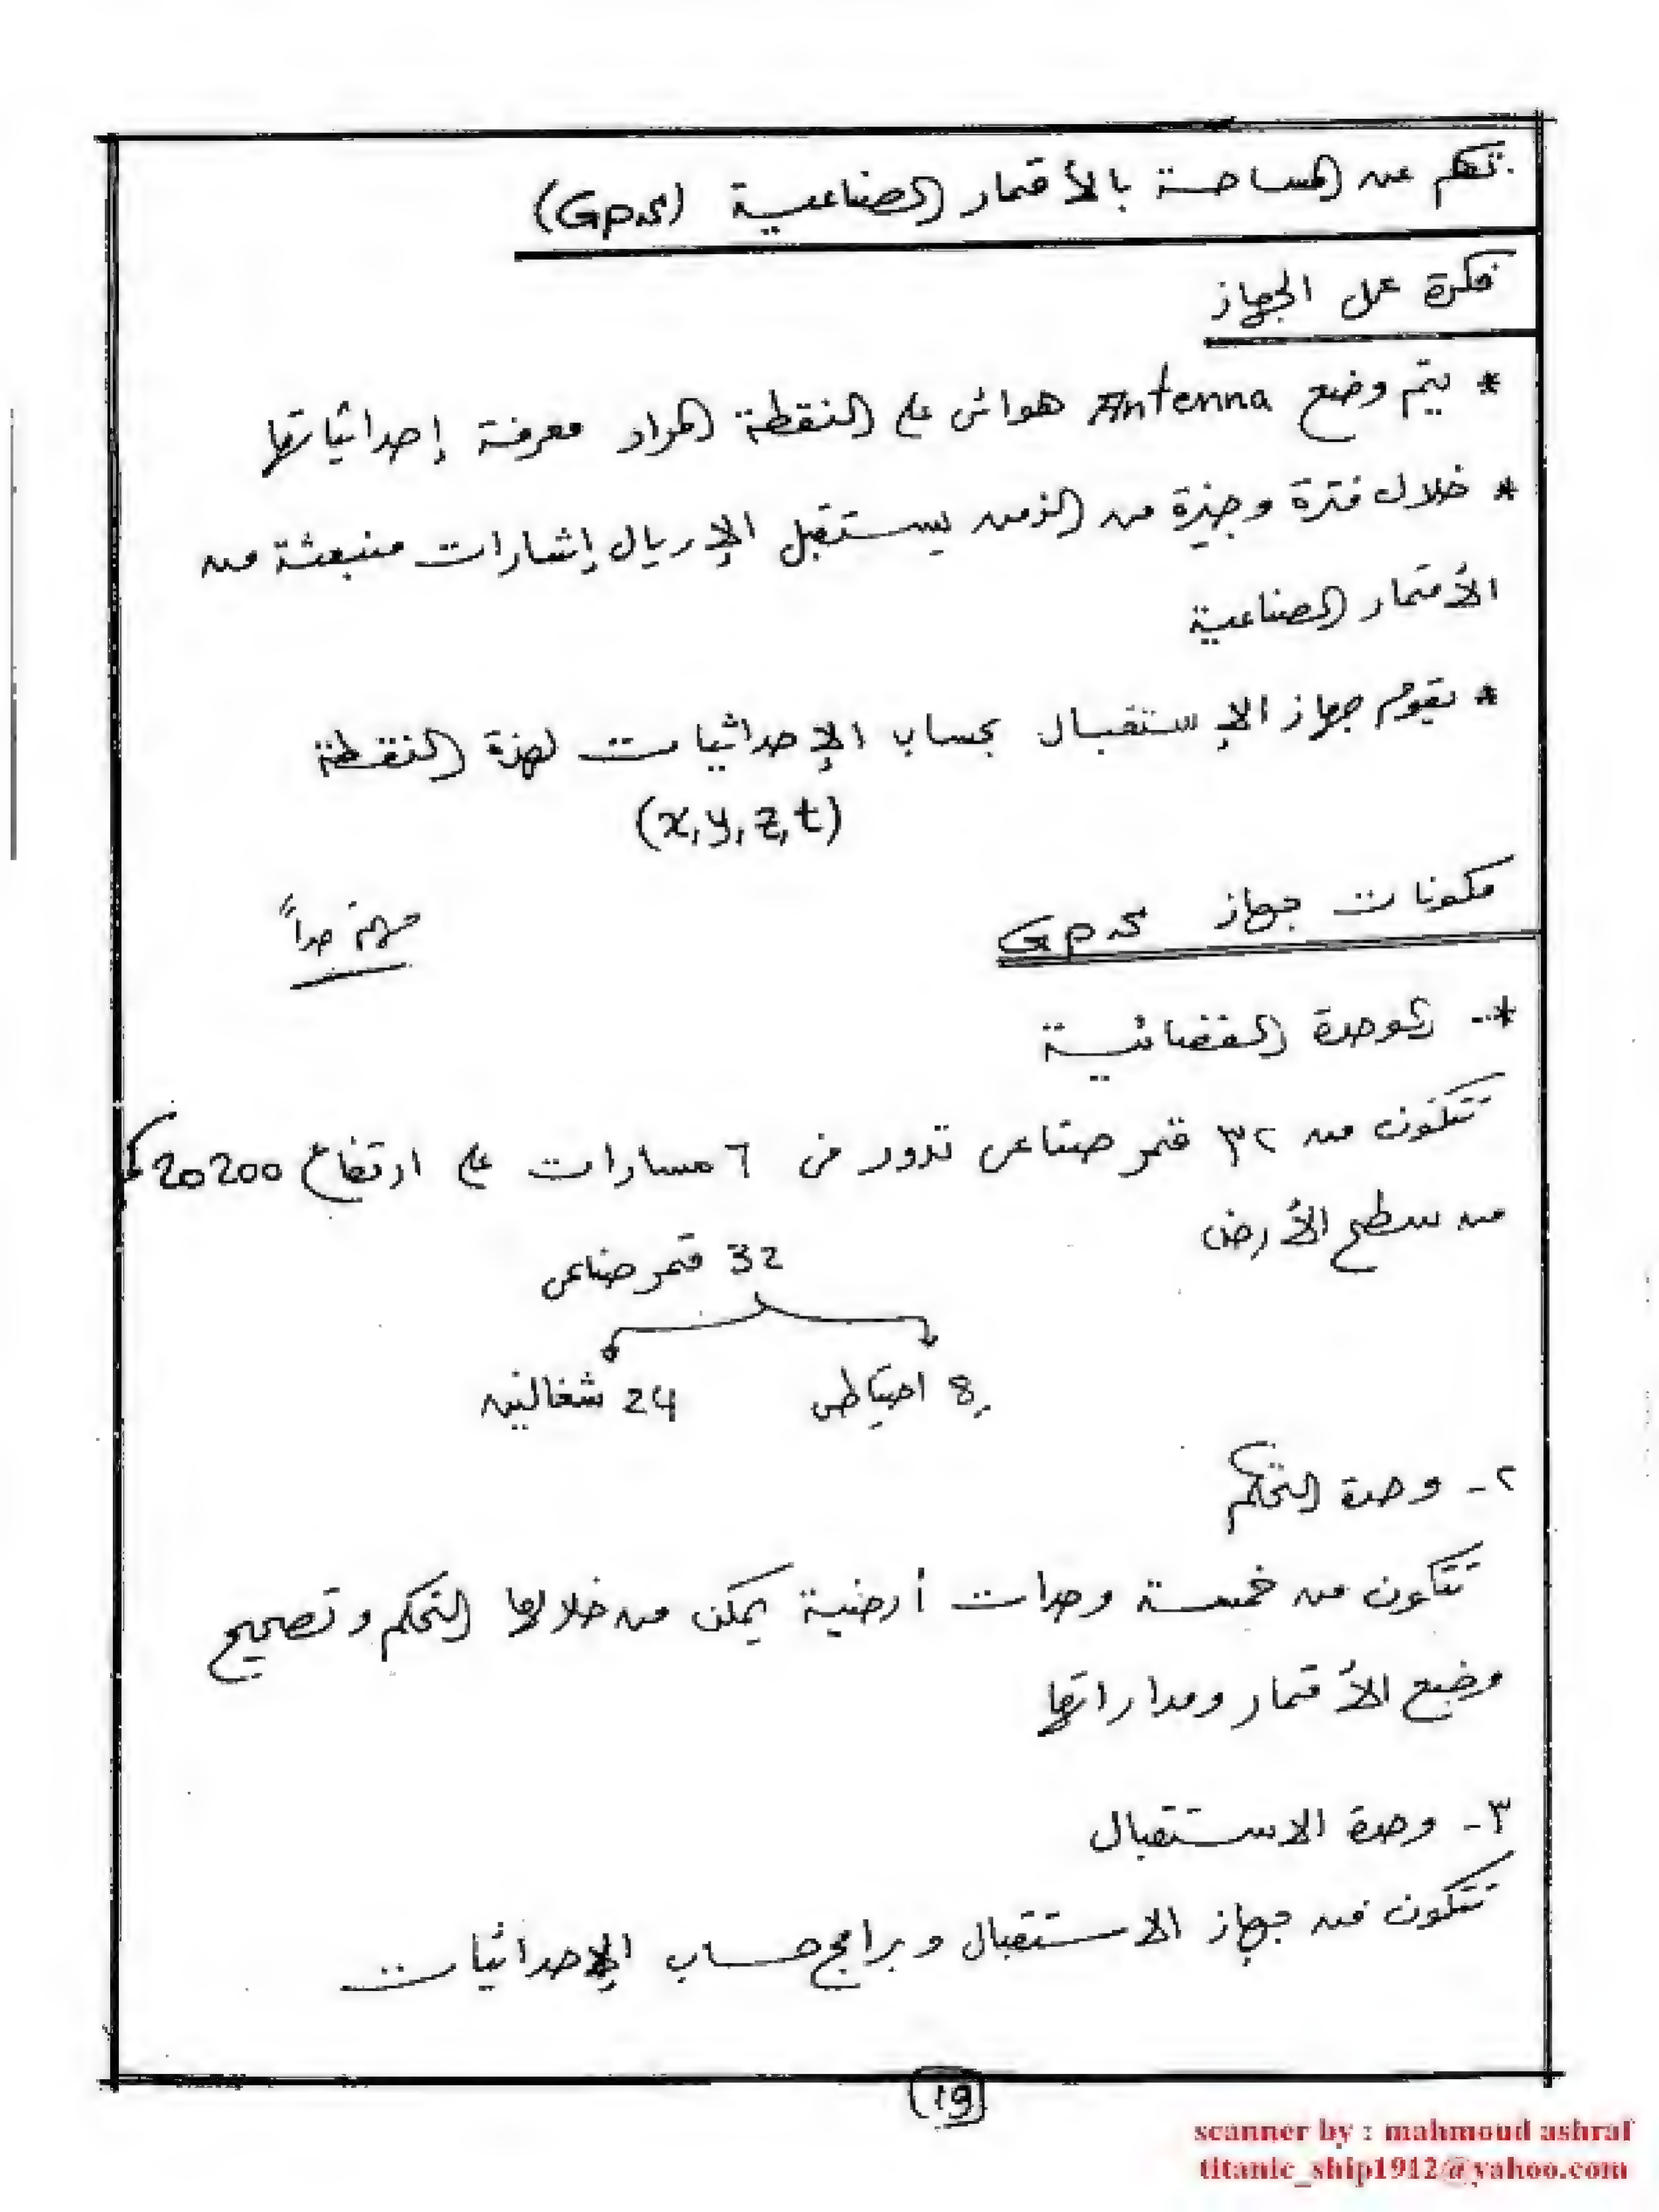 تكلم عن المساحة بالأقمار الصناعية (GPS)
فكرة عمل الجهاز
* يتم وضع Antenna هوائى على النقطة المراد معرفة إحداثياتها
* خلال فترة وجيزة من الزمن يستقبل الإريال إشارات منبعثة من
الأقمار الصناعية
* يقوم جهاز الإستقبال بحساب الإحداثيات لهذة النقطة
(x, y, z, t)
مكونات جهاز GPS
مهمة جداً
*- الوحدة الفضائية
تتكون من ٣٢ قمر صناعى تدور فى ٦ مسارات على ارتفاع 20200 كم
من سطح الأرض
32 قمر صناعى
8 احتياطى 24 شغالين
٢- وحدة التحكم
تتكون من خمسة وحدات أرضية يمكن من خلالها التحكم وتصحيح
وضع الأقمار ومداراتها
٣- وحدة الاستقبال
تتكون من جهاز الاستقبال وبرامج حساب الإحداثيات
19
scanner by : mahmoud ashraf
titanic_ship1912@yahoo.com